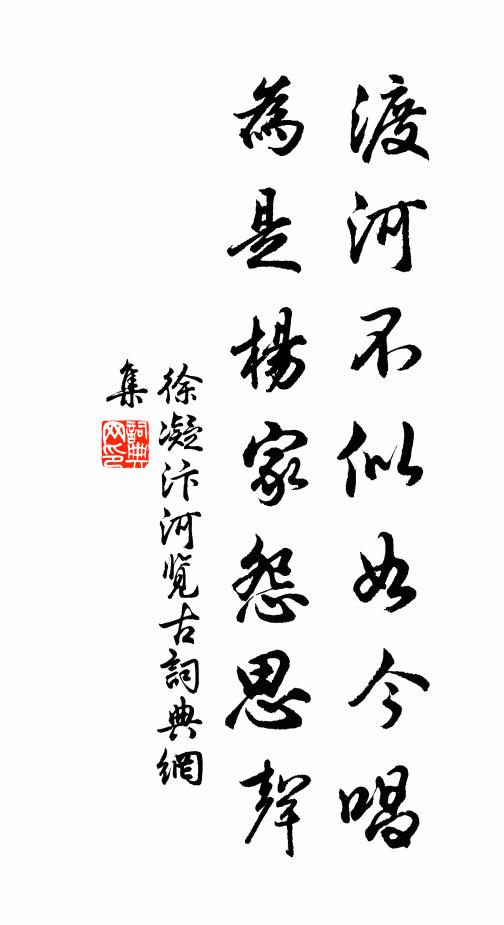 渡河不似如今唱
為是楊家怨思聲
徐凝汴河覽古詞典網
集
詞典網印